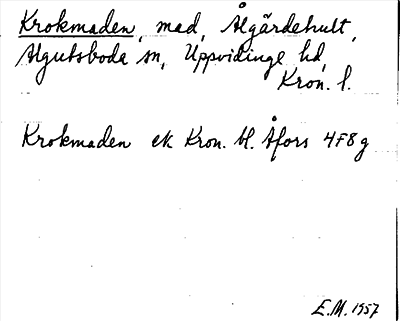 Krokmaden, mad, Ålgärdehult,
Algutsboda sn, Uppvidinge hd,
Kron. l.
Krokmaden ek Kron. bl. Åfors 4F8g
E.M. 1957